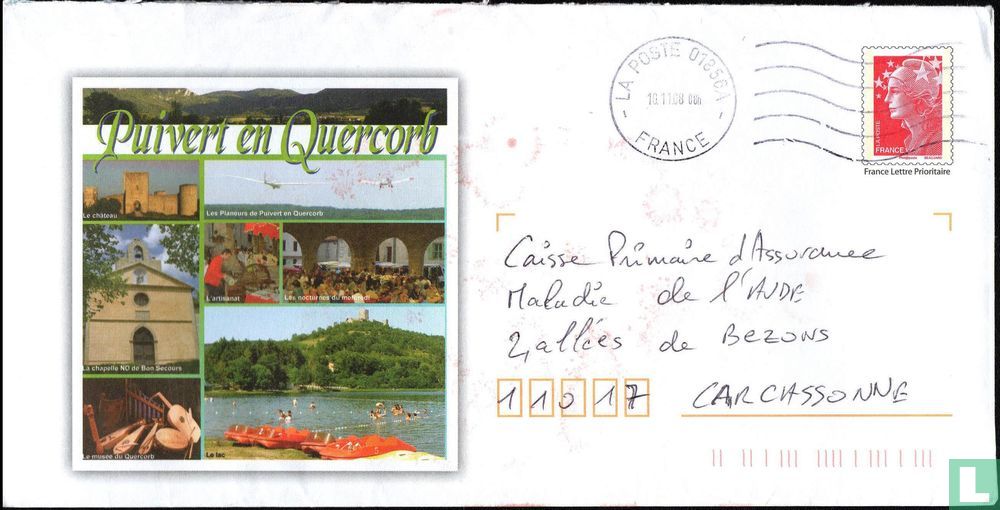 Puivert en Quercorb
Le château
Les Planeurs de Puivert en Quercorb
L'artisanat
Les nocturnes du mercredi
La chapelle ND de Bon Secours
Le musée du Quercorb
Le lac
LA POSTE 01856A
FRANCE
LA POSTE
FRANCE
BEAUJARD
France Lettre Prioritaire
Caisse Primaire d'Assurance
Maladie de l'AUDE
2, allées de BEZONS
11017 CARCASSONNE
L